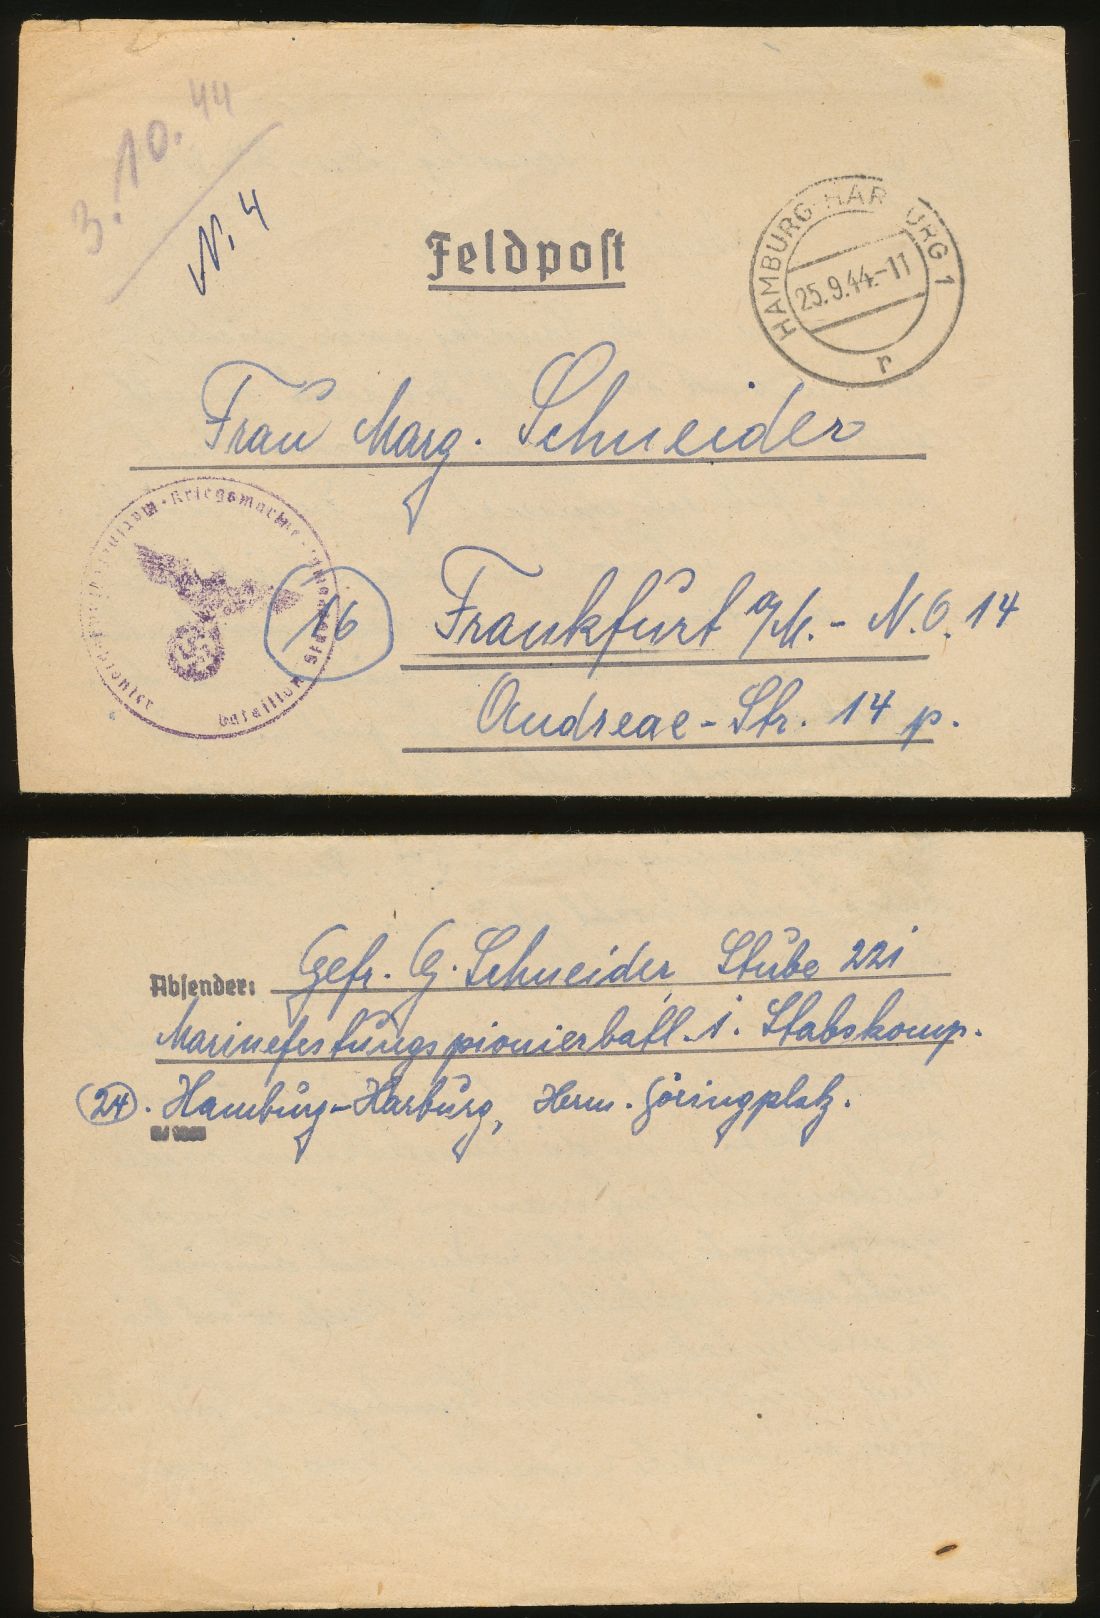 3.10.44
N. 4
Feldpost
HAMBURG-HARBURG 1
25.9.44.-11
r
Frau Marg. Schneider
Kriegsmarine
bataillon
16 Frankfurt a/M. - N.O. 14
Andreae-Str. 14 p.
Absender: Gefr. G. Schneider Stube 221
Marinefestungspionierbatl. 1. Stabskomp.
24. Hamburg-Harburg, Herm. Göringplatz.